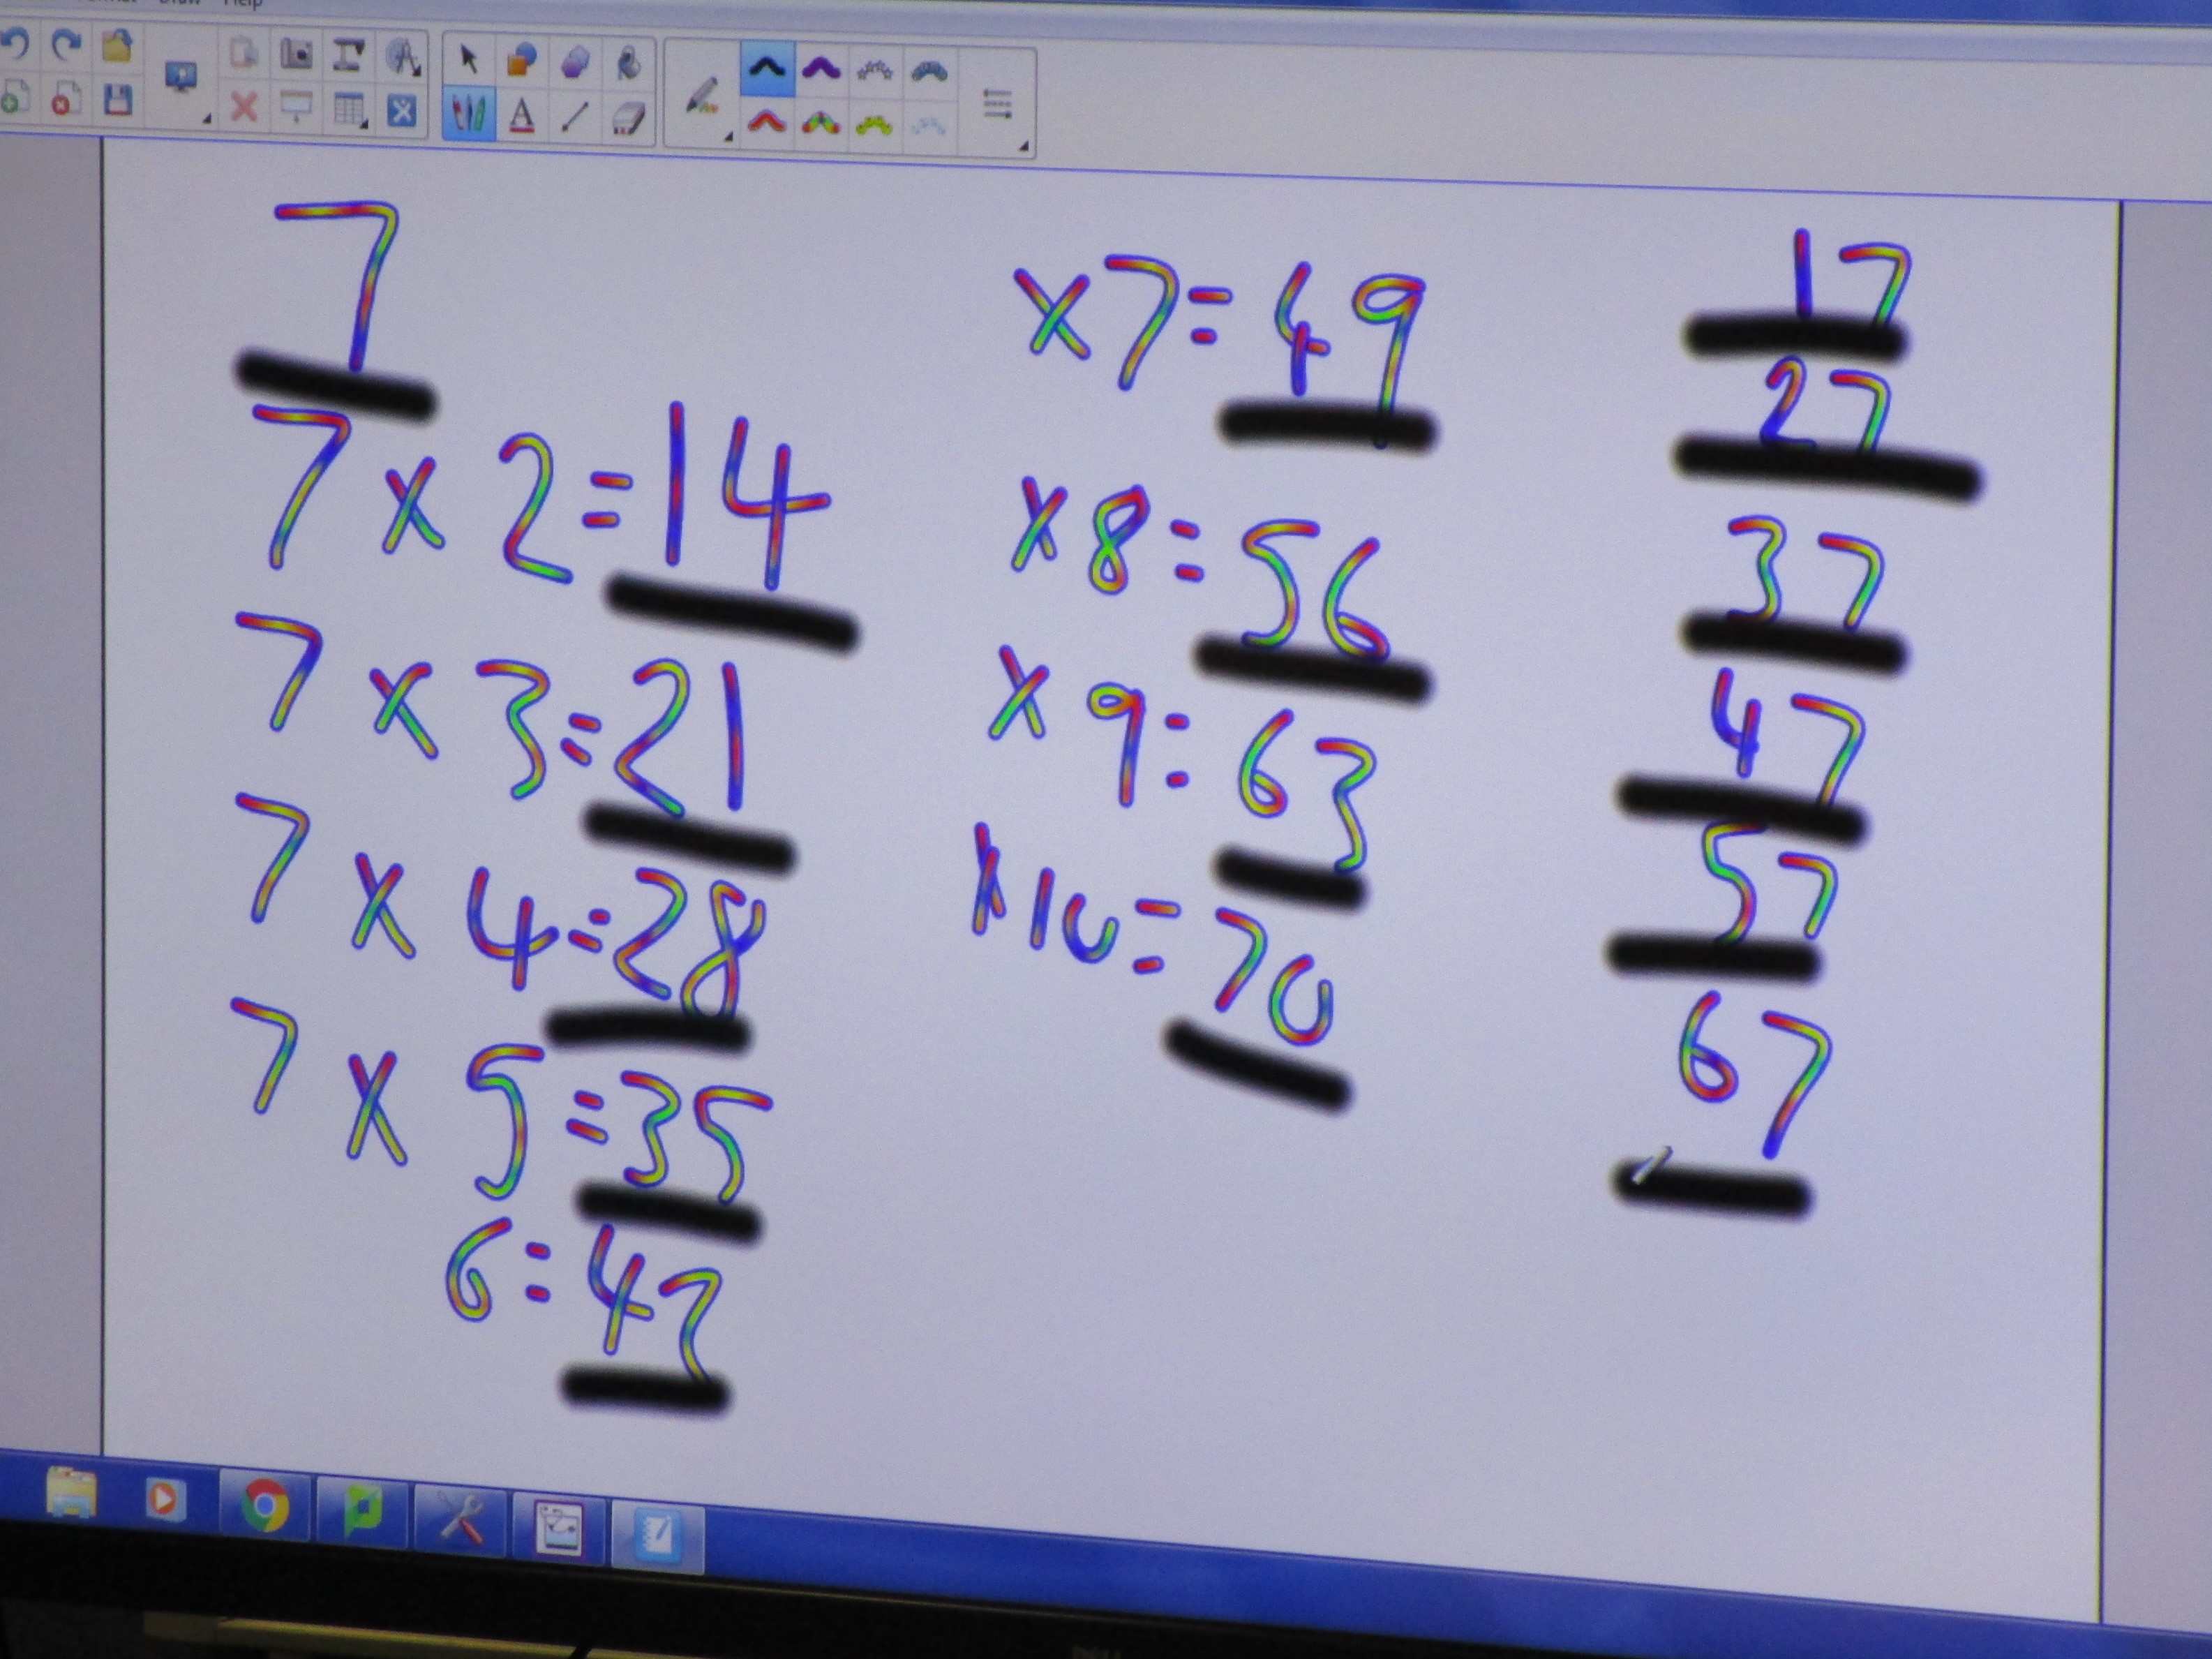 Draw Help
7
7 x 2 = 14
7 x 3 = 21
7 x 4 = 28
7 x 5 = 35
6 = 42
x 7 = 49
x 8 = 56
x 9 = 63
x 10 = 70
17
27
37
47
57
67